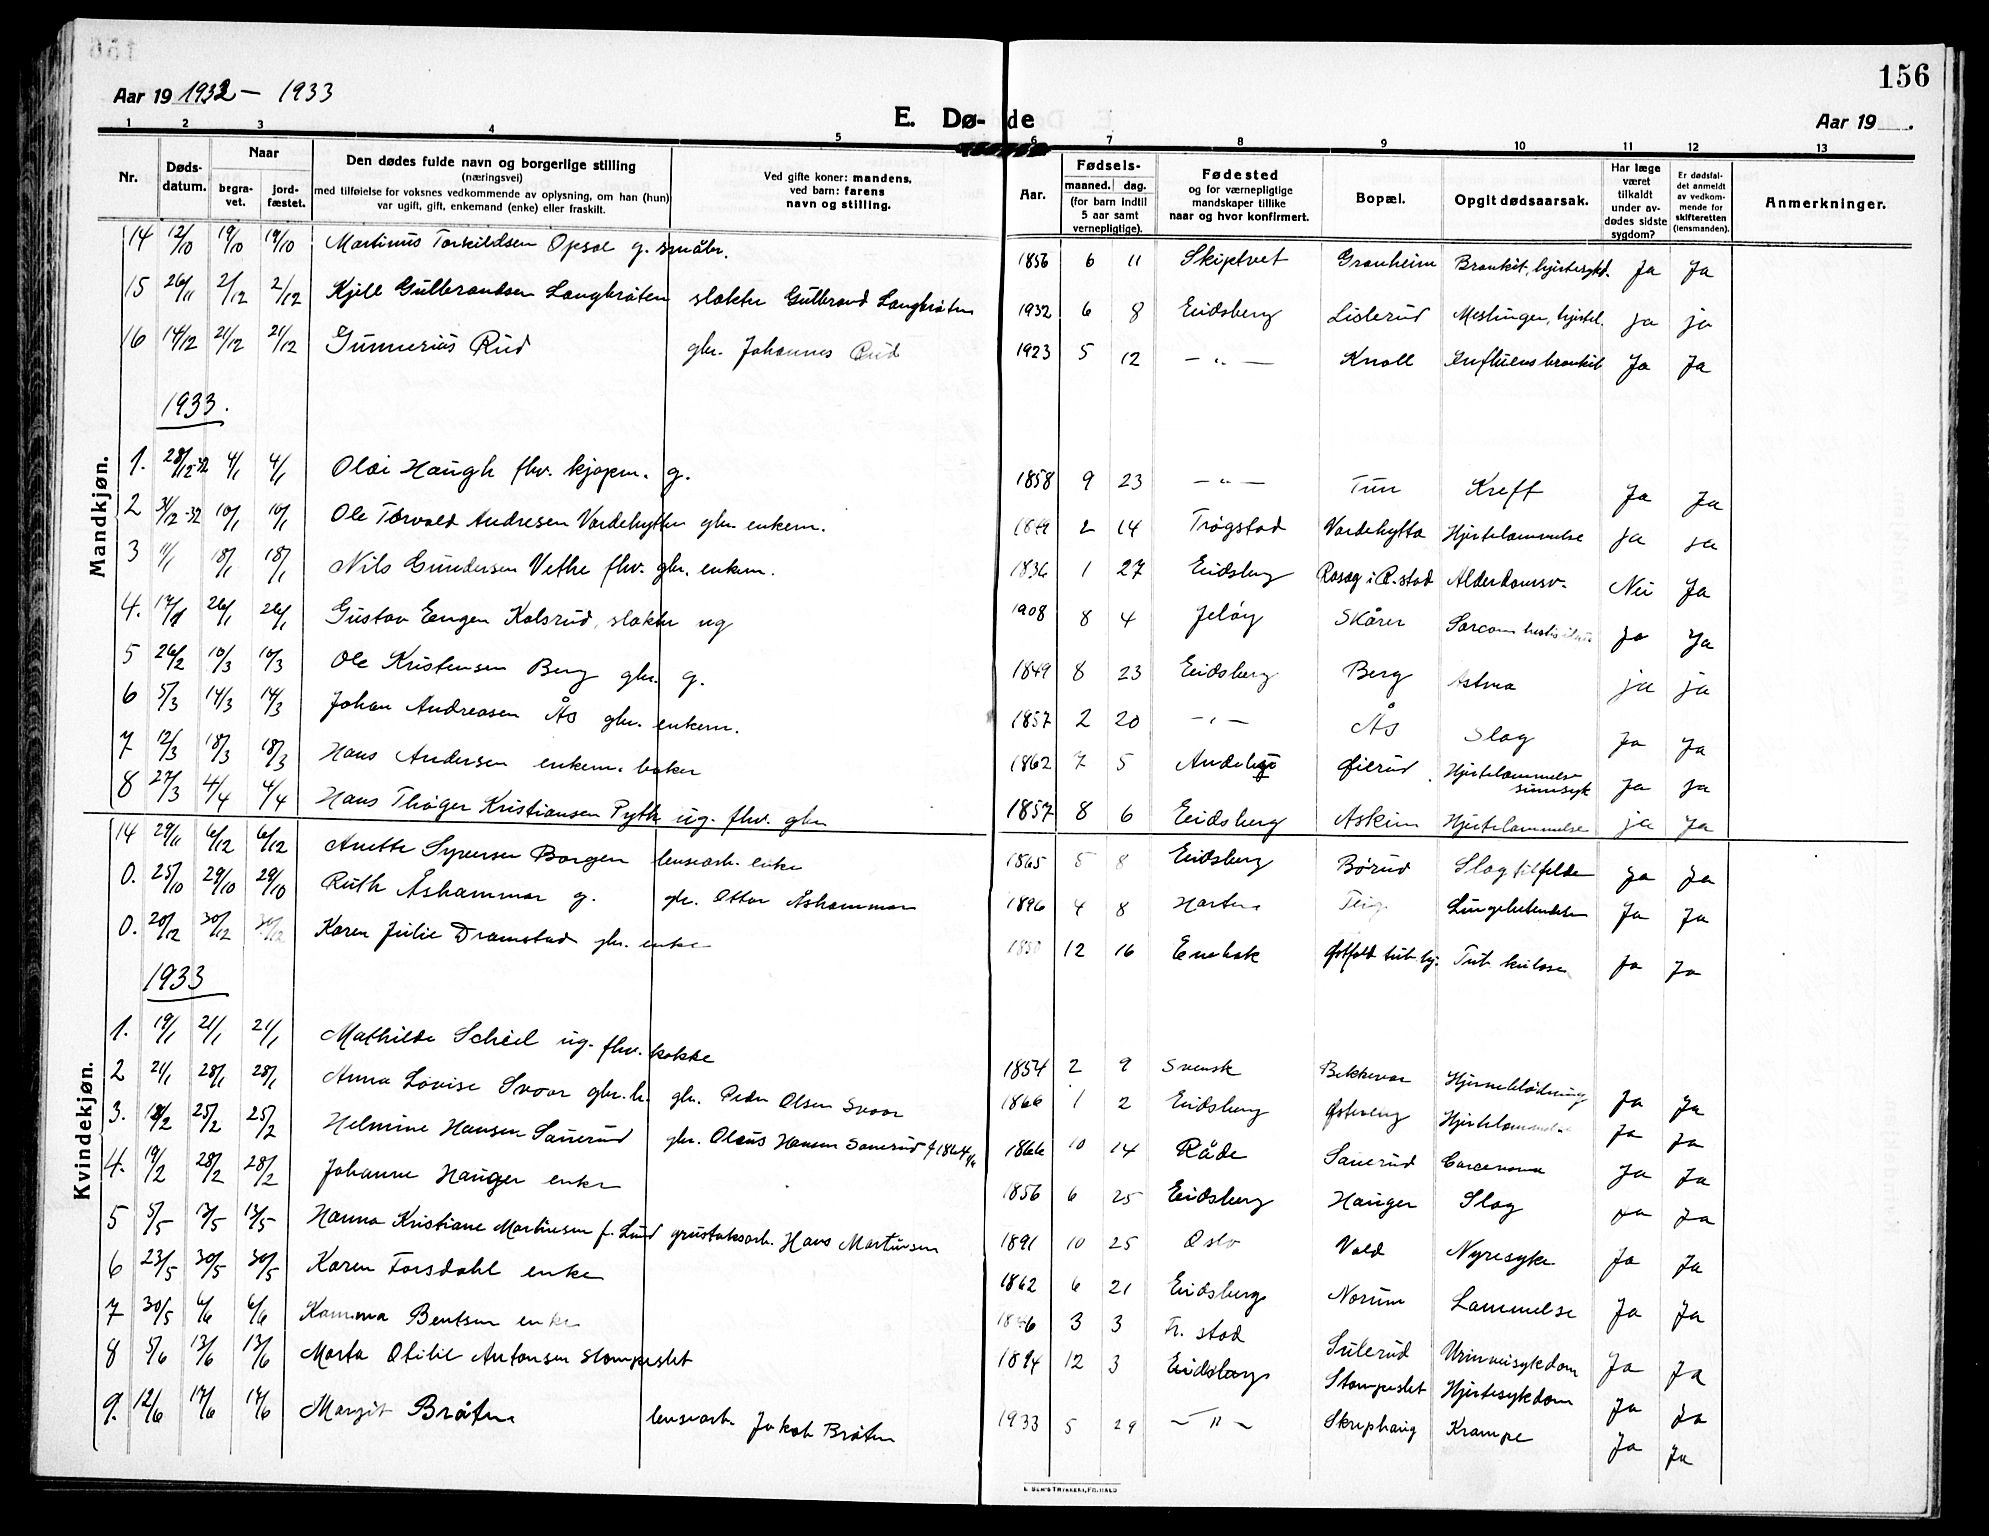 156
Aar 19 1932 – 1933
E. Dø- de
Aar 19 .
1 2 3 4 5 6 7 8 9 10 11 12 13
Nr.
Døds-datum.
Naar
begra-vet.
jord-fæstet.
Den dødes fulde navn og borgerlige stilling
(næringsvei)
med tilføielse for voksnes vedkommende av oplysning, om han (hun)
var ugift, gift, enkemand (enke) eller fraskilt.
Ved gifte koner: mandens,
ved barn: farens
navn og stilling.
Aar.
Fødsels-
maaned. dag.
(for barn indtil
5 aar samt
vernepligtige).
Fødested
og for værnepligtige
mandskaper tillike
naar og hvor konfirmert.
Bopæl.
Opgit dødsaarsak.
Har læge
været
tilkaldt
under av-
dødes sidste
sygdom?
Er dødsfal-
det anmeldt
av vedkom-
mende for
skifteretten
(lensmanden).
Anmerkninger.
Mandkjøn.
14 12/10 19/10 19/10 Martinus Torkildsen Opsal g. småbr. 1856 6 11 Skiptvet Granheim Bronkit, hjertesykd. Ja Ja
15 26/11 2/12 2/12 Kjell Gulbrandsen Langbråten slakter Gulbrand Langbråten 1932 6 8 Eidsberg Lislerud Meslinger, hjertel. ja ja
16 14/12 21/12 21/12 Gunnerius Rud gbr. Johannes Rud 1923 5 12 – " – Knoll Influens bronkit Ja Ja
1933.
1. 28/12-32 4/1 4/1 Olai Haugh fhv. kjøpm. g. 1858 9 23 – " – Tun Kreft Ja Ja
2 31/12-32 10/1 10/1 Ole Torvald Andresen Vardehytten gbr. enkem. 2 14 Trøgstad Vardehytta Hjertelammelse Ja Ja
3 11/1 18/1 18/1 Nils Gundersen Vethe fhv. gbr. enkem. 1836 1 27 Eidsberg Alderdomssv. Nei Ja
4. 26/1 26/1 Gustav Eugen Kolsrud, slakter ug 1908 8 4 Jeløy Skårer Sarcom Ja Ja
5 26/2 10/3 10/3 Ole Kristensen Berg gbr. g. 1849 8 23 Eidsberg Berg Astma ja ja
6 5/3 14/3 14/3 Johan Andreasen Ås gbr. enkem. 1857 2 20 – " – Ås Slag Ja Ja
7 12/3 18/3 18/3 Hans Andersen enkem. baker 1862 7 5 Hjertelammelse sinnsyk Ja Ja
8 27/3 4/4 4/4 Hans Thøger Kristiansen ug. fhv. gbr 1857 8 6 Eidsberg Askim Hjertelammelse ja Ja
Kvindekjøn.
14 29/11 6/12 6/12 Anette Syversen Borgen enke 1865 5 8 Eidsberg Børud Slagtilfelde Ja Ja
0. 25/10 29/10 29/10 Ruth Åshammar g. gbr. Ottar Åshammar 1896 4 8 Ja Ja
0. 20/12 30/12 30/12 Karen Julie Dramstad gbr. enke 12 16 Enebak Østfold tub.hj. Tuberkulose Ja Ja
1933
1. 19/1 21/1 21/1 Mathilde Scheel ug. fhv. kokke 1854 2 9 Svensk Bekkevar Hjerneblødning Ja Ja
2 21/1 28/1 28/1 Anna Lovise Svoor gbr. h. gbr. Peder Olsen Svoor 1866 1 2 Eidsberg Østereng Hjertelammelse Ja Ja
3. 18/2 25/2 25/2 Helmine Hansen Sauerud gbr. Olaus Hansen Sauerud 1866 10 14 Råde Sauerud Carcenoma Ja Ja
4. 19/2 28/2 28/2 Johanne Hauger enke 1856 6 25 Eidsberg Hauger Slag Ja Ja
5 5/5 13/5 13/5 Hanna Kristiane Martinsen f. Lund grustaksarb. Hans Martinsen 1891 10 25 Oslo Vold Nyresyke Ja Ja
6 23/5 30/5 30/5 Karen Forsdahl enke 1862 6 21 Eidsberg Norum Lammelse Ja Ja
7 30/5 6/6 6/6 Kamma Bentsen enke 3 3 Fr. stad Sulerud Urinveisykdom Ja Ja
8 5/6 13/6 13/6 Marta Otilie Antonsen Stompeslet 1894 12 3 Eidsberg Stompeslet Hjertesykdom Ja Ja
9. 12/6 17/6 17/6 Margit Bråten Jakob Bråten 1933 5 29 – " – Skriphaug Krampe Ja Ja